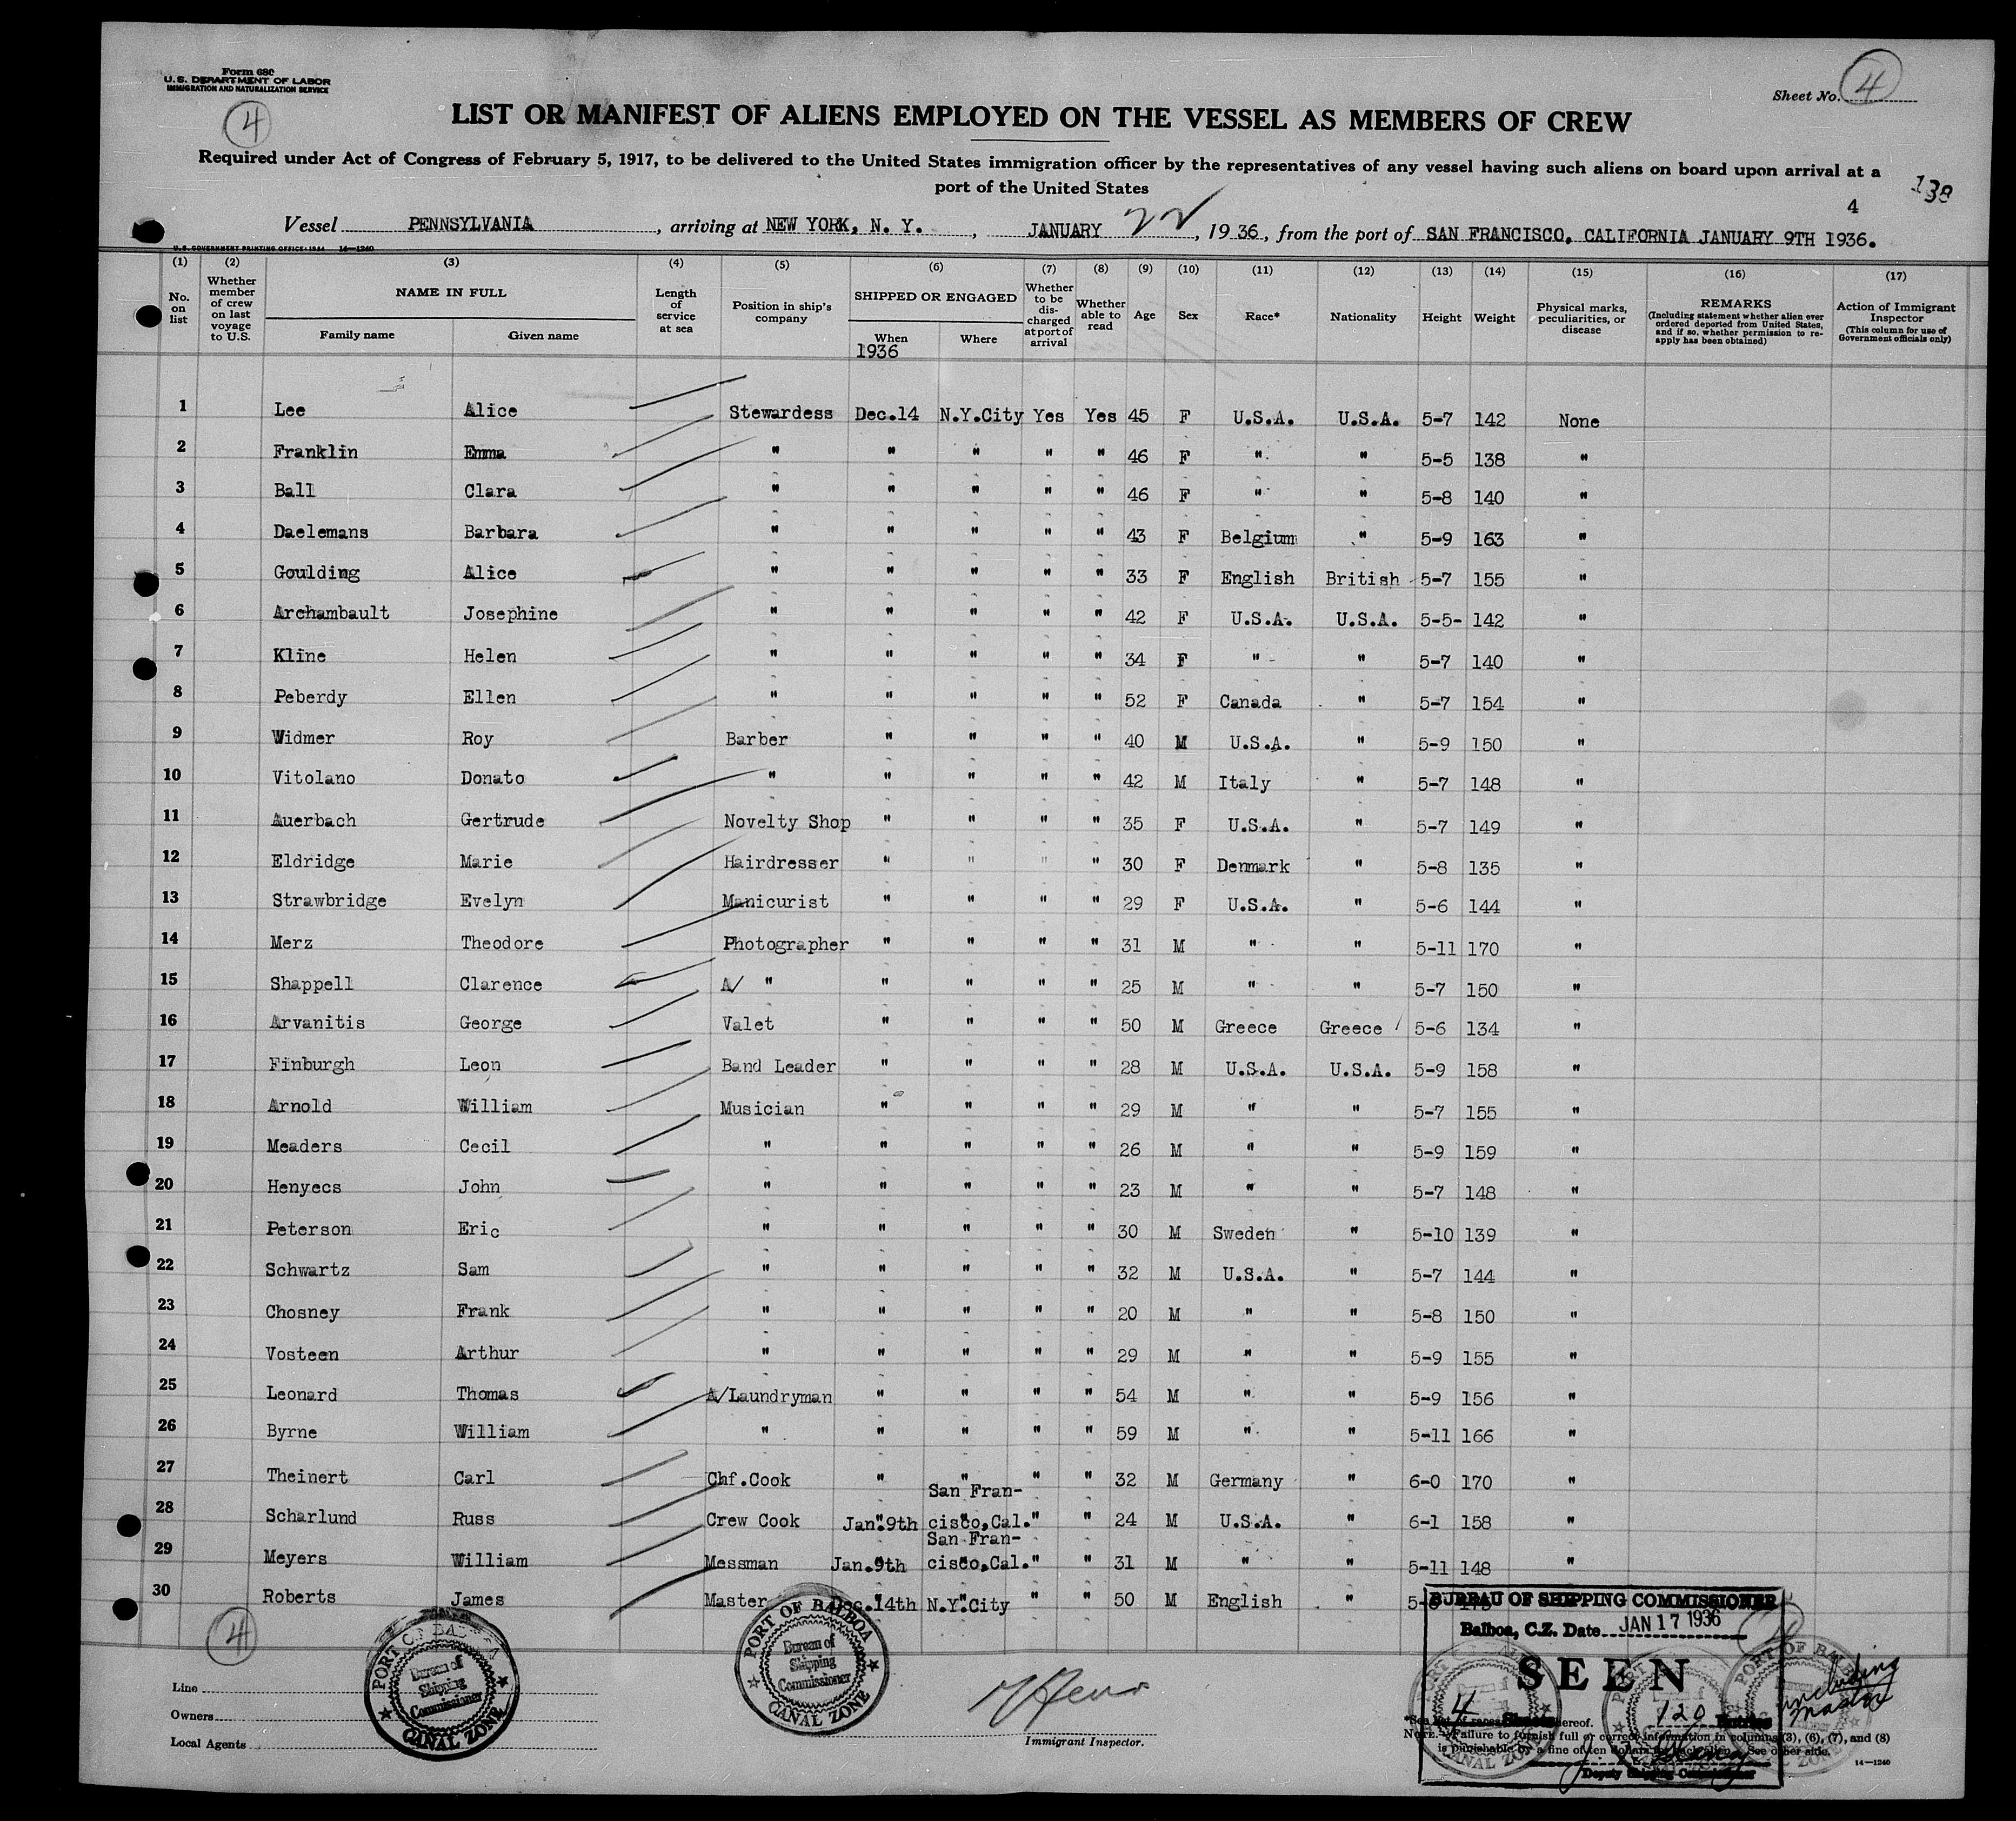 Form 680
U. S. DEPARTMENT OF LABOR
IMMIGRATION AND NATURALIZATION SERVICE
4
Sheet No. 4
LIST OR MANIFEST OF ALIENS EMPLOYED ON THE VESSEL AS MEMBERS OF CREW
Required under Act of Congress of February 5, 1917, to be delivered to the United States immigration officer by the representatives of any vessel having such aliens on board upon arrival at a
port of the United States
138
4
Vessel PENNSYLVANIA, arriving at NEW YORK, N. Y., JANUARY 22, 1936, from the port of SAN FRANCISCO, CALIFORNIA JANUARY 9TH 1936.
U. S. GOVERNMENT PRINTING OFFICE: 14—1240
(1) (2) (3) (4) (5) (6) (7) (8) (9) (10) (11) (12) (13) (14) (15) (16) (17)
No. on list
Whether member of crew on last voyage to U.S.
NAME IN FULL
Family name
Given name
Length of service at sea
Position in ship's company
SHIPPED OR ENGAGED
When
Where
1936
Whether to be discharged at port of arrival
Whether able to read
Age
Sex
Race*
Nationality
Height
Weight
Physical marks, peculiarities, or disease
REMARKS
(Including statement whether alien ever ordered deported from United States, and if so, whether permission to reapply has been obtained)
Action of Immigrant Inspector
(This column for use of Government officials only)
1 Lee Alice Stewardess Dec.14 N.Y.City Yes Yes 45 F U.S.A. U.S.A. 5-7 142 None
2 Franklin Emma " " " " " 46 F " " 5-5 138 "
3 Ball Clara " " " " " 46 F " " 5-8 140 "
4 Daelemans Barbara " " " " " 43 F Belgium " 5-9 163 "
5 Goulding Alice " " " " " 33 F English British 5-7 155 "
6 Archambault Josephine " " " " " 42 F U.S.A. U.S.A. 5-5- 142 "
7 Kline Helen " " " " " 34 F " " 5-7 140 "
8 Peberdy Ellen " " " " " 52 F Canada " 5-7 154 "
9 Widmer Roy Barber " " " " 40 M U.S.A. " 5-9 150 "
10 Vitolano Donato " " " " " 42 M Italy " 5-7 148 "
11 Auerbach Gertrude Novelty Shop " " " " 35 F U.S.A. " 5-7 149 "
12 Eldridge Marie Hairdresser " " " " 30 F Denmark " 5-8 135 "
13 Strawbridge Evelyn Manicurist " " " " 29 F U.S.A. " 5-6 144 "
14 Merz Theodore Photographer " " " " 31 M " " 5-11 170 "
15 Shappell Clarence A/ " " " " " 25 M " " 5-7 150 "
16 Arvanitis George Valet " " " " 50 M Greece Greece 5-6 134 "
17 Finburgh Leon Band Leader " " " " 28 M U.S.A. U.S.A. 5-9 158 "
18 Arnold William Musician " " " " 29 M " " 5-7 155 "
19 Meaders Cecil " " " " " 26 M " " 5-9 159 "
20 Henyecs John " " " " " 23 M " " 5-7 148 "
21 Peterson Eric " " " " " 30 M Sweden " 5-10 139 "
22 Schwartz Sam " " " " " 32 M U.S.A. " 5-7 144 "
23 Chosney Frank " " " " " 20 M " " 5-8 150 "
24 Vosteen Arthur " " " " " 29 M " " 5-9 155 "
25 Leonard Thomas A/Laundryman " " " " 54 M " " 5-9 156 "
26 Byrne William " " " " " 59 M " " 5-11 166 "
27 Theinert Carl Chf.Cook " " " " 32 M Germany " 6-0 170 "
28 Scharlund Russ Crew Cook Jan.9th San Francisco,Cal. " " 24 M U.S.A. " 6-1 158 "
29 Meyers William Messman Jan.9th San Francisco,Cal. " " 31 M " " 5-11 148 "
30 Roberts James Master Dec.14th N.Y.City " " 50 M English "
4
Line
Owners
Local Agents
PORT OF BALBOA
Bureau of Shipping Commissioner
CANAL ZONE
PORT OF BALBOA
Bureau of Shipping Commissioner
CANAL ZONE
Immigrant Inspector.
BUREAU OF SHIPPING COMMISSIONER
Balboa, C.Z. Date JAN 17 1936
SEEN
4 Sheets 120 Entries
including master
Deputy Shipping Commissioner
NOTE.—Failure to furnish full or correct information in columns (3), (6), (7), and (8)
is punishable by a fine of ten dollars for each alien. See other side.
14—1240